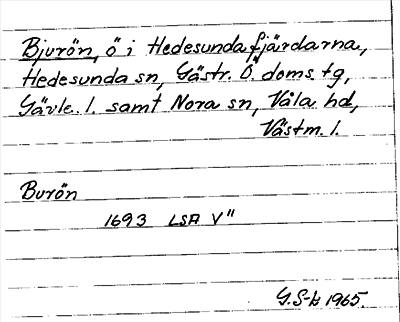 Bjurön, ö i Hedesundafjärdarna,
Hedesunda sn, Gästr. Ö. doms. tg,
Gävle. l. samt Nora sn, Våla hd,
Västm. l.
Burön
1693 LSA V"
G.S-b 1965.